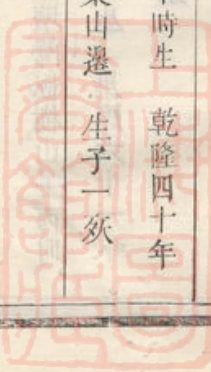 時生 乾隆四十年
山邊 生子一